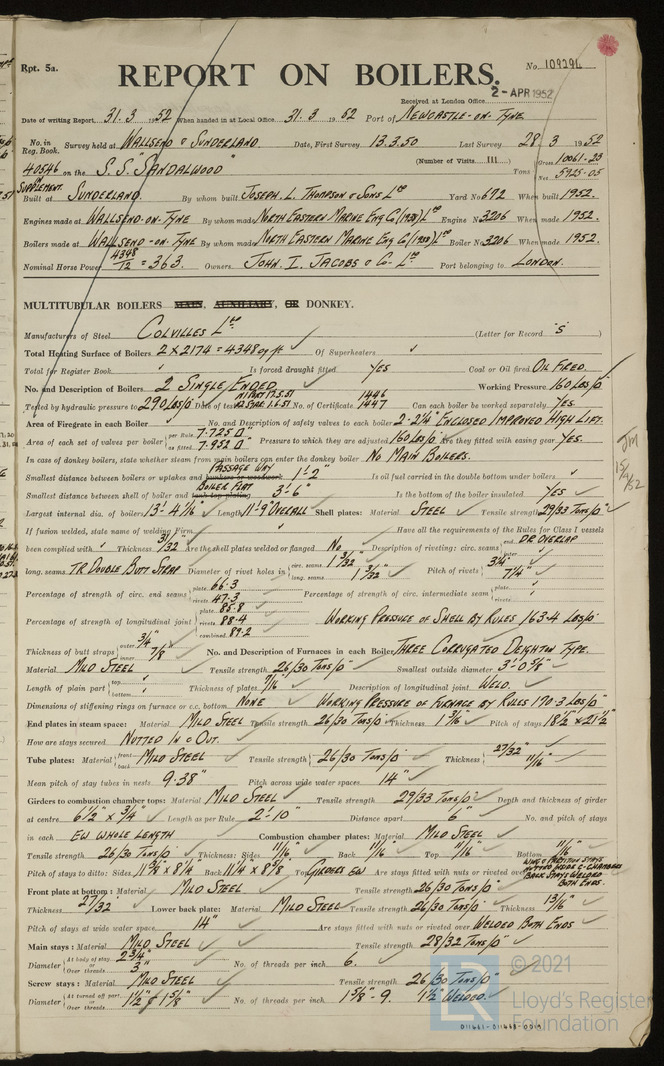 Rpt. 5a.
No. 109296
REPORT ON BOILERS.
2-APR 1952
Received at London Office
Date of writing Report 31.3 1952 When handed in at Local Office 31.3 1952 Port of NEWCASTLE-ON-TYNE
No. in Reg. Book. Survey held at WALLSEND & SUNDERLAND. Date, First Survey 13.3.50 Last Survey 28.3 1952
40546 IN SUPPLEMENT. on the S.S. "SANDALWOOD" (Number of Visits 111) Tons Gross 10061.23 Net 5925.05
Built at SUNDERLAND. By whom built JOSEPH. L. THOMPSON & SONS LTD Yard No 672 When built 1952.
Engines made at WALLSEND-ON-TYNE By whom made NORTH EASTERN MARINE ENG CO (1938) LTD Engine No 3206 When made 1952.
Boilers made at WALLSEND-ON-TYNE By whom made NORTH EASTERN MARINE ENG CO (1938) LTD Boiler No 3206 When made 1952.
Nominal Horse Power 4348/12 = 363. Owners JOHN. I. JACOBS & CO LTD Port belonging to LONDON.
MULTITUBULAR BOILERS MAIN, AUXILIARY, OR DONKEY.
Manufacturers of Steel COLVILLES LTD (Letter for Record 'S')
Total Heating Surface of Boilers 2 x 2174 = 4348 sq ft Of Superheaters
Total for Register Book Is forced draught fitted YES Coal or Oil fired OIL FIRED.
No. and Description of Boilers 2 SINGLE/ENDED Working Pressure 160 LBS/□"
Tested by hydraulic pressure to 290 LBS/□" Date of test No. of Certificate 1446 1447 Can each boiler be worked separately YES.
Area of Firegrate in each Boiler No. and Description of safety valves to each boiler 2-2¼" ENCLOSED IMPROVED HIGH LIFT.
Area of each set of valves per boiler per Rule 7.725 □" as fitted 7.952 □" Pressure to which they are adjusted 160 LBS/□" Are they fitted with easing gear YES.
In case of donkey boilers, state whether steam from main boilers can enter the donkey boiler NO MAIN BOILERS.
Smallest distance between boilers or uptakes and bunkers or woodwork PASSAGE WAY 1'-2" Is oil fuel carried in the double bottom under boilers
Smallest distance between shell of boiler and tank top plating BOILER FLAT 3'-6" Is the bottom of the boiler insulated YES
Largest internal dia. of boilers 13'-4 1/16" Length 11'-9" OVERALL Shell plates: Material STEEL Tensile strength 29/33 TONS/□"
If fusion welded, state name of welding Firm Have all the requirements of the Rules for Class I vessels
been complied with Thickness 31/32" Are the shell plates welded or flanged NO Description of riveting: circ. seams end DR OVERLAP inter
long. seams TR DOUBLE BUTT STRAP Diameter of rivet holes in circ. seams 1 3/32" long. seams 1 3/32" Pitch of rivets 3¼" 7¼"
Percentage of strength of circ. end seams plate 66.3 rivets 47.3 Percentage of strength of circ. intermediate seam plate rivets
Percentage of strength of longitudinal joint plate 85.8 rivets 88.4 combined 89.2 WORKING PRESSURE OF SHELL BY RULES 163.4 LBS/□"
Thickness of butt straps outer 3/4" inner 7/8" No. and Description of Furnaces in each Boiler THREE CORRUGATED DEIGHTON TYPE.
Material MILD STEEL Tensile strength 26/30 TONS/□" Smallest outside diameter 3'-0⅝"
Length of plain part top bottom Thickness of plates 7/16" Description of longitudinal joint WELD.
Dimensions of stiffening rings on furnace or c.c. bottom NONE WORKING PRESSURE OF FURNACE BY RULES 170.3 LBS/□"
End plates in steam space: Material MILD STEEL Tensile strength 26/30 TONS/□" Thickness 1 3/16" Pitch of stays 18½" x 21½"
How are stays secured NUTTED IN & OUT.
Tube plates: Material front back MILD STEEL Tensile strength 26/30 TONS/□" Thickness 27/32" 11/16"
Mean pitch of stay tubes in nests 9.38" Pitch across wide water spaces 14"
Girders to combustion chamber tops: Material MILD STEEL Tensile strength 29/33 TONS/□" Depth and thickness of girder
at centre 6½" x ¾" Length as per Rule 2'-10" Distance apart 6" No. and pitch of stays
in each EW WHOLE LENGTH Combustion chamber plates: Material MILD STEEL
Tensile strength 26/30 TONS/□" Thickness: Sides 11/16" Back 11/16" Top 11/16" Bottom 11/16"
Pitch of stays to ditto: Sides 11¾" x 8¼" Back 11¼" x 8⅝" Top GIRDERS EW Are stays fitted with nuts or riveted over NUTTED INSIDE C-CHAMBERS BACK STAYS WELDED BOTH ENDS.
Front plate at bottom: Material MILD STEEL Tensile strength 26/30 TONS/□"
Thickness 27/32" Lower back plate: Material MILD STEEL Tensile strength 26/30 TONS/□" Thickness 13/16"
Pitch of stays at wide water space 14" Are stays fitted with nuts or riveted over WELDED BOTH ENDS
Main stays: Material MILD STEEL Tensile strength 28/32 TONS/□"
Diameter At body of stay, or Over threads 2¾" 3" No. of threads per inch 6.
Screw stays: Material MILD STEEL Tensile strength 26/30 TONS/□"
Diameter At turned off part, or Over threads 1½" & 1⅝" No. of threads per inch 1⅝" - 9. 1½" WELDED.
© 2021
Lloyd's Register
Foundation
011661-011668-0014